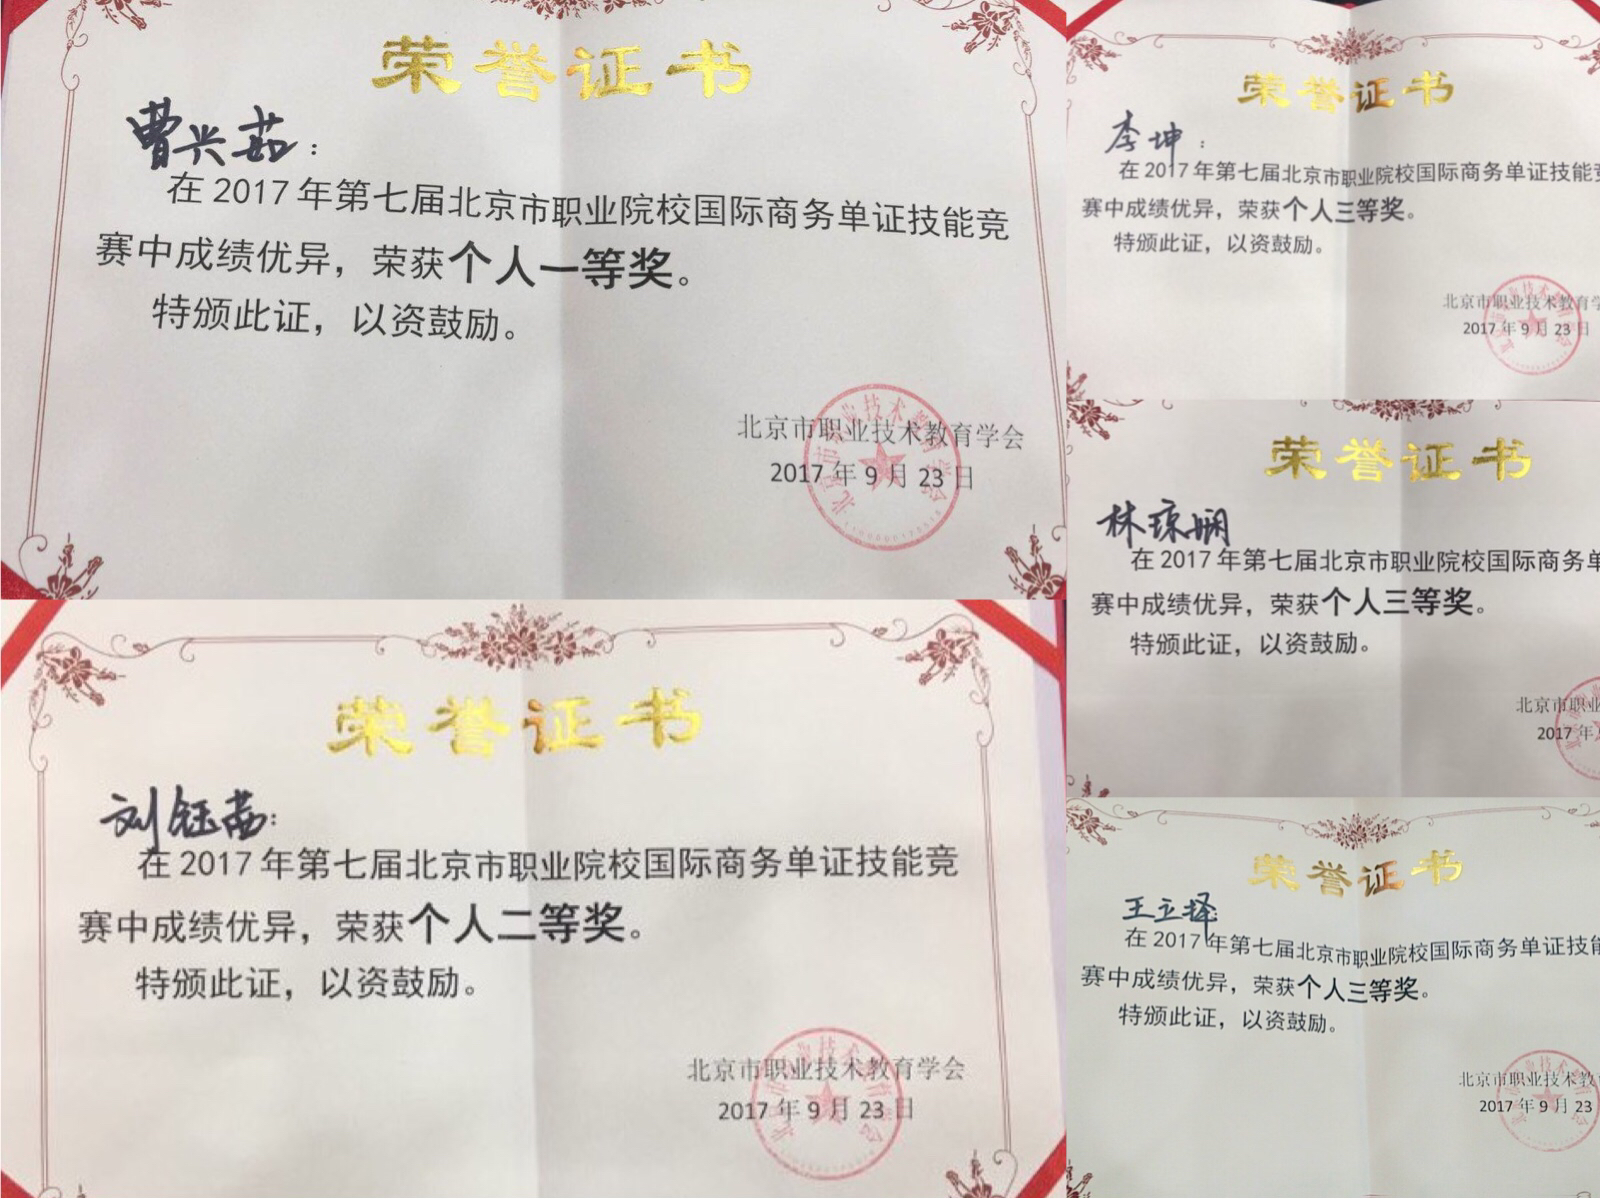 荣誉证书
曹兴茹：
在2017年第七届北京市职业院校国际商务单证技能竞
赛中成绩优异，荣获个人一等奖。
特颁此证，以资鼓励。
北京市职业技术教育学会
2017年9月23日
荣誉证书
刘钰茜：
在2017年第七届北京市职业院校国际商务单证技能竞
赛中成绩优异，荣获个人二等奖。
特颁此证，以资鼓励。
北京市职业技术教育学会
2017年9月23日
荣誉证书
李坤：
在2017年第七届北京市职业院校国际商务单证技能竞
赛中成绩优异，荣获个人三等奖。
特颁此证，以资鼓励。
北京市职业技术教育学
2017年9月23日
荣誉证书
林琼娴
在2017年第七届北京市职业院校国际商务单
赛中成绩优异，荣获个人三等奖。
特颁此证，以资鼓励。
北京市职业
2017年
荣誉证书
王立择：
在2017年第七届北京市职业院校国际商务单证技能
赛中成绩优异，荣获个人三等奖。
特颁此证，以资鼓励。
北京市职业技术教
2017年9月23